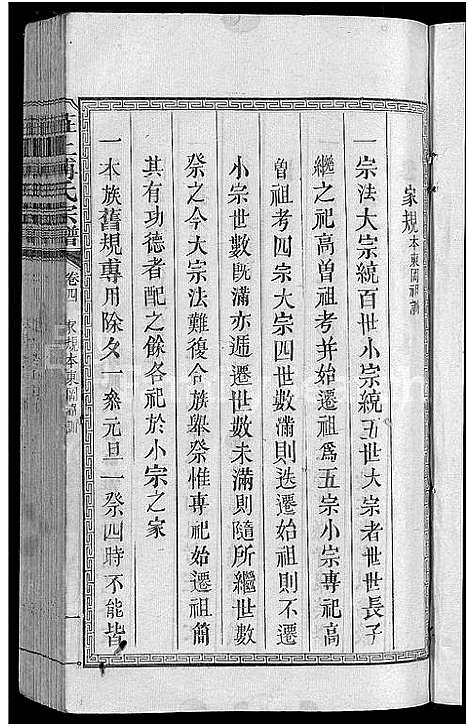 家規 本東岡祖訓
一宗法大宗統百世小宗統五世大宗者世世長子
繼之祀高曾祖考并始遷祖爲五宗小宗專祀高
曽祖考四宗大宗四世數滿則迭遷始祖則不遷
小宗世數旣滿亦遞遷世數未滿則隨所繼世數
祭之今大宗法難復合族舉祭惟專祀始遷祖簡
其有功德者配之餘各祀於小宗之家
一本族舊規專用除夕一祭元旦一祭四時不能皆
氏宗譜
卷四
家規本東岡
一